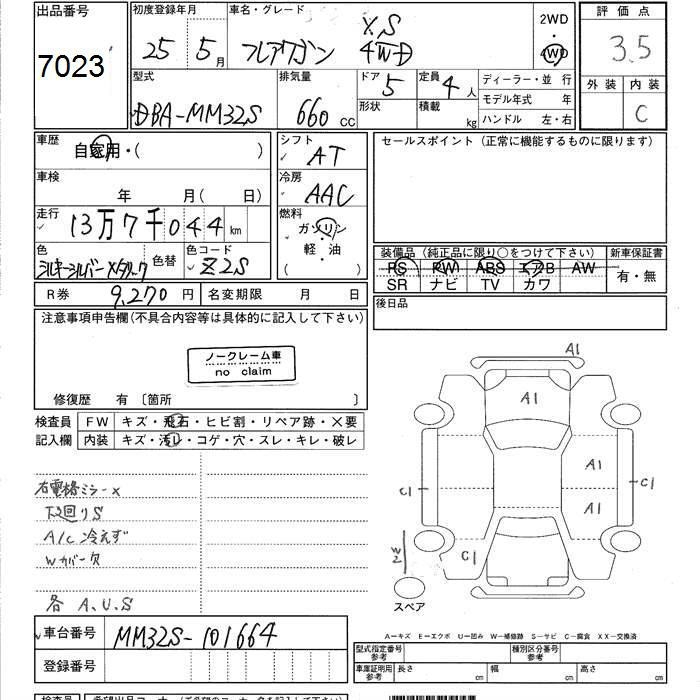 出品番号
7023
初度登録年月
25年 5月
車名・グレード
XS
フレアワゴン 4WD
2WD
・
4WD
評価点
3.5
外装 内装
C
型式
DBA-MM32S
排気量
660 CC
ドア 5
形状
定員 4人
積載 kg
ディーラー・並行
モデル年式 年
ハンドル 左・右
車歴
自家用・( )
シフト
AT
セールスポイント（正常に機能するものに限ります）
車検
年 月( 日)
冷房
AAC
走行
13万7千044 km
燃料
ガソリン
軽・油
( )
色
シルキーシルバーメタリック
色替
色コード
Z2S
装備品（純正品に限り○をつけて下さい）
新車保証書
PS PW ABS エアB AW
SR ナビ TV カワ
有・無
R券 9,270円
名変期限 月 日
後日品
注意事項申告欄(不具合内容等は具体的に記入して下さい)
ノークレーム車
no claim
修復歴 有 〔箇所 〕
検査員記入欄
FW キズ・飛石・ヒビ割・リペア跡・X要
内装 キズ・汚レ・コゲ・穴・スレ・キレ・破レ
右電格ミラーX
下廻りS
A/C冷えず
Wカバー欠
各 A、U、S
A1
A1
A1
A1
C1
C1
C1
W2
スペア
車台番号 MM32S-101664
登録番号
A―キズ E―エクボ U―凹み W―補修跡 S―サビ C―腐食 XX―交換済
型式指定番号 参考
種別区分番号 参考
車庫証明用 参考
長さ cm
幅 cm
高さ cm